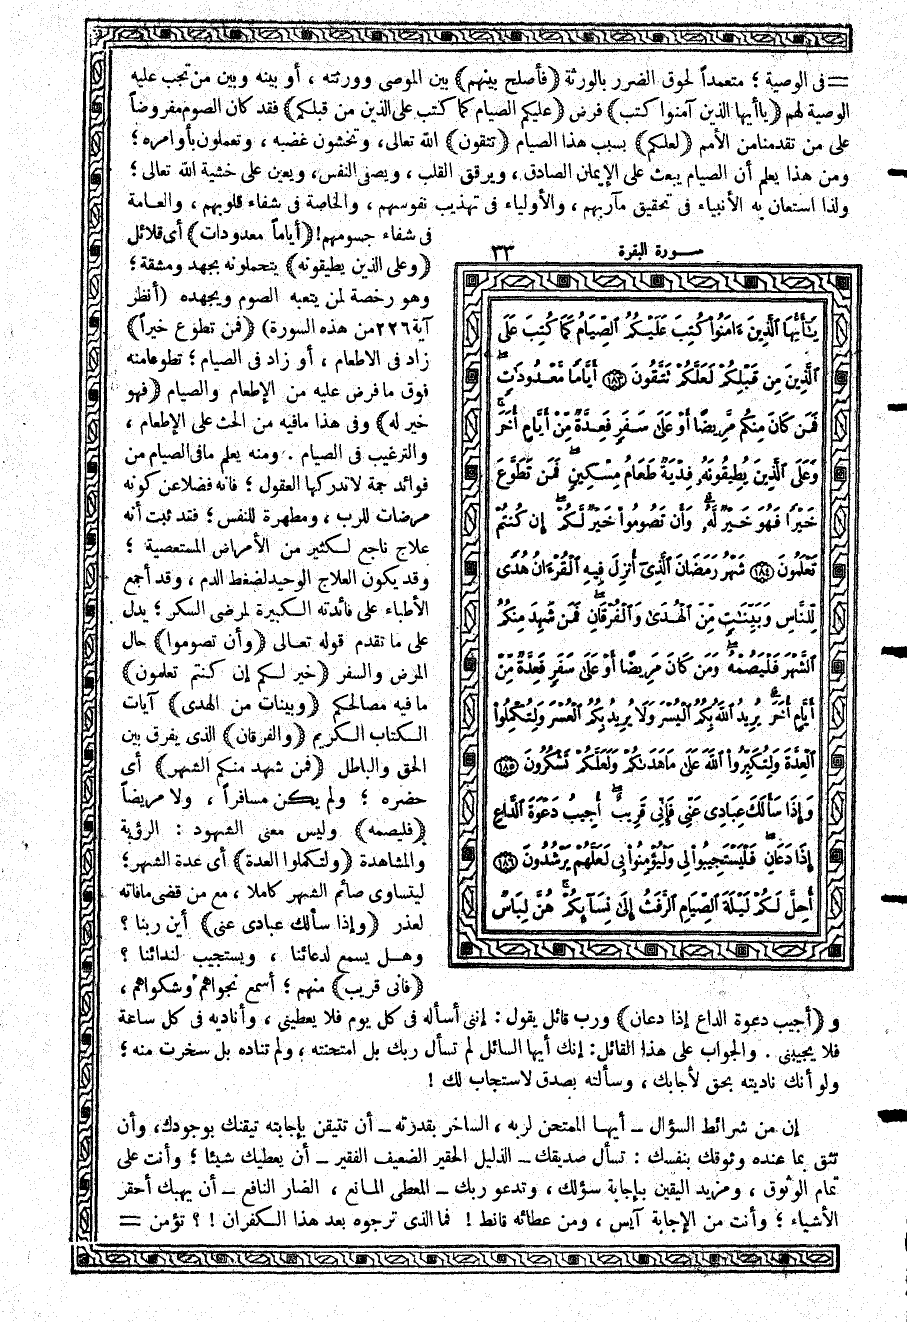 = فى الوصية ؛ متعمداً لحوق الضرر بالورثة (فأصلح بينهم) بين الموصى وورثته ، أو بينه وبين من تجب عليه
الوصية لهم (ياأيها الذين آمنوا كتب) فرض (عليكم الصيام كما كتب على الذين من قبلكم) فقد كان الصوم مفروضاً
على من تقدمنا من الأمم (لعلكم) بسبب هذا الصيام (تتقون) الله تعالى، وتخشون غضبه ، وتعملون بأوامره ؛
ومن هذا يعلم أن الصيام يبعث على الإيمان الصادق ، ويرقق القلب ، ويصفى النفس، ويعين على خشية الله تعالى ؛
ولذا استعان به الأنبياء فى تحقيق مآربهم ، والأولياء فى تهذيب نفوسهم ، والخاصة فى شفاء قلوبهم ، والعامة
فى شفاء جسومهم! (أياماً معدودات) أى قلائل
(وعلى الذين يطيقونه) يتحملونه بجهد ومشقة ؛
وهو رخصة لمن يتعبه الصوم ويجهده (أنظر
آية ٢٢٦ من هذه السورة) (فمن تطوع خيراً)
زاد فى الاطعام ، أو زاد فى الصيام ؛ تطوعا منه
فوق ما فرض عليه من الإطعام والصيام (فهو
خير له) وفى هذا مافيه من الحث على الإطعام ،
والترغيب فى الصيام . ومنه يعلم مافى الصيام من
فوائد جمة لاتدركها العقول ؛ فانه فضلا عن كونه
مرضات للرب ، ومطهرة للنفس ؛ فقد ثبت أنه
علاج ناجع لكثير من الأمراض المستعصية ؛
وقد يكون العلاج الوحيد لضغط الدم ، وقد أجمع
الأطباء على فائدته الكبيرة لمرضى السكر ؛ يدل
على ما تقدم قوله تعالى (وأن تصوموا) حال
المرض والسفر (خير لكم إن كنتم تعلمون)
ما فيه مصالحكم (وبينات من الهدى) آيات
الكتاب الكريم (والفرقان) الذى يفرق بين
الحق والباطل (فمن شهد منكم الشهر) أى
حضره ؛ ولم يكن مسافراً ، ولا مريضاً
(فليصمه) وليس معنى الشهود : الرؤية
والمشاهدة (ولتكملوا العدة) أى عدة الشهر ؛
ليتساوى صائم الشهر كاملا ، مع من قضى مافاته
لعذر (وإذا سألك عبادى عنى) أين ربنا ؟
وهل يسمع لدعائنا ، ويستجيب لندائنا ؟
(فانى قريب) منهم ؛ أسمع نجواهم وشكواهم ،
سورة البقرة ٣٣
يَٰٓأَيُّهَا ٱلَّذِينَ ءَامَنُوا۟ كُتِبَ عَلَيْكُمُ ٱلصِّيَامُ كَمَا كُتِبَ عَلَى
ٱلَّذِينَ مِن قَبْلِكُمْ لَعَلَّكُمْ تَتَّقُونَ ١٨٣ أَيَّامًا مَّعْدُودَٰتٍ
فَمَن كَانَ مِنكُم مَّرِيضًا أَوْ عَلَىٰ سَفَرٍ فَعِدَّةٌ مِّنْ أَيَّامٍ أُخَرَ
وَعَلَى ٱلَّذِينَ يُطِيقُونَهُۥ فِدْيَةٌ طَعَامُ مِسْكِينٍ فَمَن تَطَوَّعَ
خَيْرًا فَهُوَ خَيْرٌ لَّهُۥ وَأَن تَصُومُوا۟ خَيْرٌ لَّكُمْ إِن كُنتُمْ
تَعْلَمُونَ ١٨٤ شَهْرُ رَمَضَانَ ٱلَّذِىٓ أُنزِلَ فِيهِ ٱلْقُرْءَانُ هُدًى
لِّلنَّاسِ وَبَيِّنَٰتٍ مِّنَ ٱلْهُدَىٰ وَٱلْفُرْقَانِ فَمَن شَهِدَ مِنكُمُ
ٱلشَّهْرَ فَلْيَصُمْهُ وَمَن كَانَ مَرِيضًا أَوْ عَلَىٰ سَفَرٍ فَعِدَّةٌ مِّنْ
أَيَّامٍ أُخَرَ يُرِيدُ ٱللَّهُ بِكُمُ ٱلْيُسْرَ وَلَا يُرِيدُ بِكُمُ ٱلْعُسْرَ وَلِتُكْمِلُوا۟
ٱلْعِدَّةَ وَلِتُكَبِّرُوا۟ ٱللَّهَ عَلَىٰ مَا هَدَىٰكُمْ وَلَعَلَّكُمْ تَشْكُرُونَ ١٨٥
وَإِذَا سَأَلَكَ عِبَادِى عَنِّى فَإِنِّى قَرِيبٌ أُجِيبُ دَعْوَةَ ٱلدَّاعِ
إِذَا دَعَانِ فَلْيَسْتَجِيبُوا۟ لِى وَلْيُؤْمِنُوا۟ بِى لَعَلَّهُمْ يَرْشُدُونَ ١٨٦
أُحِلَّ لَكُمْ لَيْلَةَ ٱلصِّيَامِ ٱلرَّفَثُ إِلَىٰ نِسَآئِكُمْ هُنَّ لِبَاسٌ
و (أجيب دعوة الداع إذا دعان) ورب قائل يقول : إننى أسأله فى كل يوم فلا يعطينى ، وأناديه فى كل ساعة
فلا يجيبنى . والجواب على هذا القائل: إنك أيها السائل لم تسأل ربك بل امتحنته ، ولم تناده بل سخرت منه ؛
ولو أنك ناديته بحق لأجابك ، وسألته بصدق لاستجاب لك !
إن من شرائط السؤال ـ أيهـا الممتحن لربه ، الساخر بقدرته ـ أن تتيقن بإجابته تيقنك بوجودك، وأن
تثق بما عنده وثوقك بنفسك : تسأل صديقك ـ الذليل الحقير الضعيف الفقير ـ أن يعطيك شيئا ؛ وأنت على
تمام الوثوق ، ومزيد اليقين بإجابة سؤلك ، وتدعو ربك ـ المعطى المانع ، الضار النافع ـ أن يهبك أحقر
الأشياء ؛ وأنت من الإجابة آيس ، ومن عطائه قانط ! فما الذى ترجوه بعد هذا الكفران ! ؟ تؤمن =